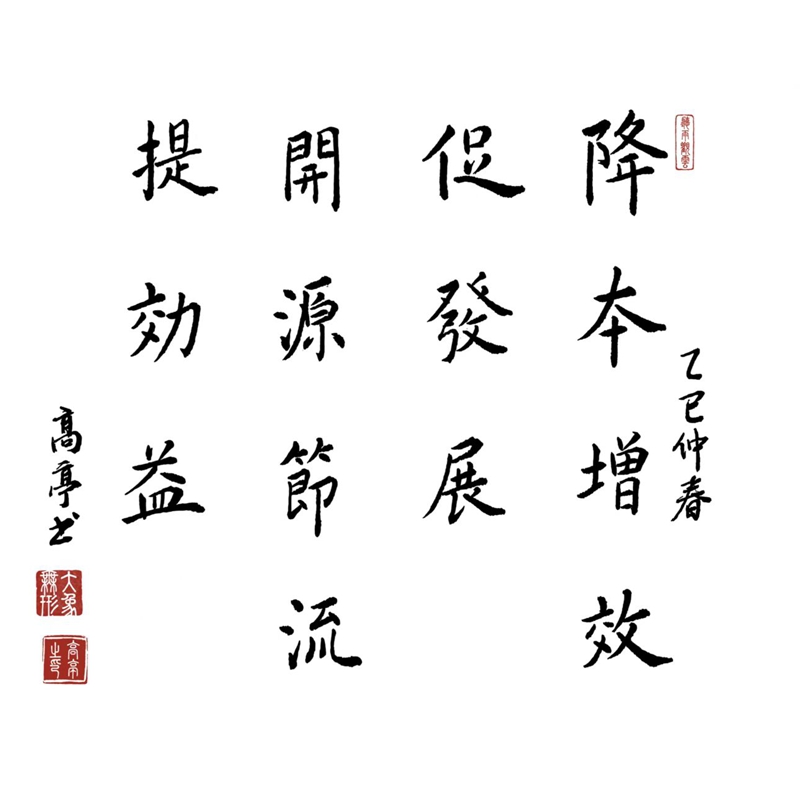 降本增效
乙巳仲春
促發展
開源節流
提効益
高亭书
大象無形
高亭之印